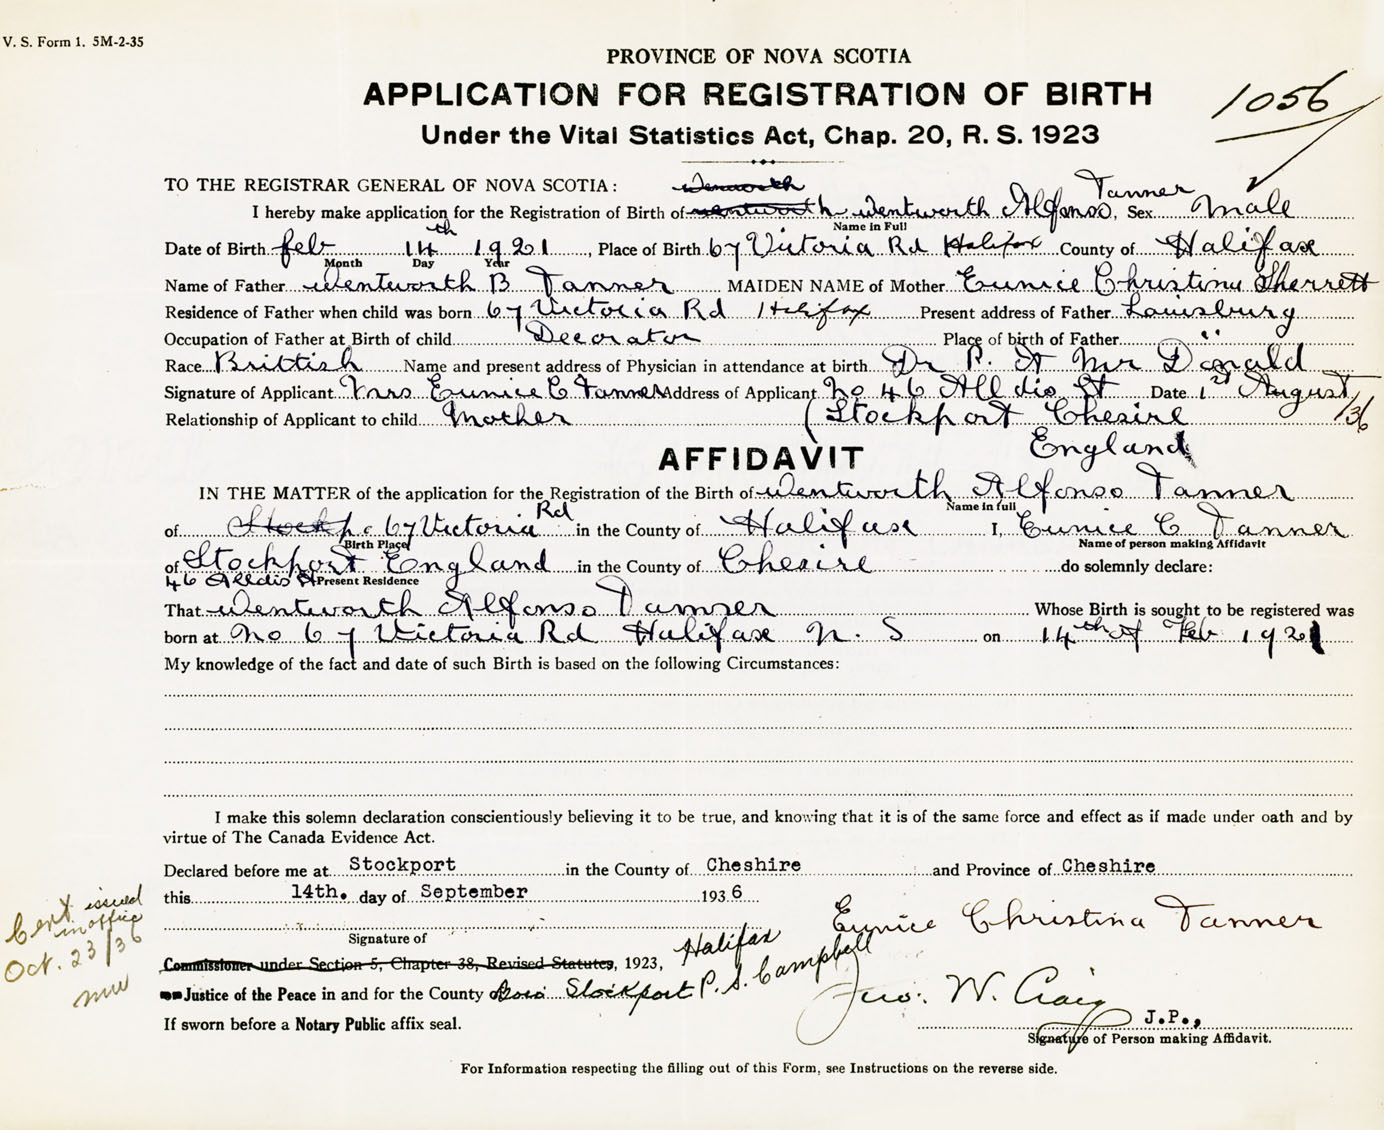 V. S. Form 1. 5M-2-35
PROVINCE OF NOVA SCOTIA
APPLICATION FOR REGISTRATION OF BIRTH
1056
Under the Vital Statistics Act, Chap. 20, R. S. 1923
TO THE REGISTRAR GENERAL OF NOVA SCOTIA:
Tanner
I hereby make application for the Registration of Birth of wentworth Wentworth Alfonso, Sex Male
Name in Full
Date of Birth feb 14th 1921, Place of Birth 67 Victoria Rd Halifax County of Halifax
Month Day Year
Name of Father Wentworth B Tanner MAIDEN NAME of Mother Eunice Christina Sherrett
Residence of Father when child was born 67 Victoria Rd Halifax Present address of Father Louisburg
Occupation of Father at Birth of child Decorator Place of birth of Father " "
Race Brittish Name and present address of Physician in attendance at birth Dr P. A Mr Donald
Signature of Applicant Mrs Eunice C Tanner Address of Applicant No 46 Alldis St Date 1st August /36
Relationship of Applicant to child Mother (Stockport Chesire
England
AFFIDAVIT
IN THE MATTER of the application for the Registration of the Birth of Wentworth Alfonso Tanner
Name in full
of Stockp 67 Victoria Rd in the County of Halifax I, Eunice C Tanner
Birth Place Name of person making Affidavit
of Stockport England in the County of Chesire do solemnly declare:
46 Alldis St Present Residence
That Wentworth Alfonso Tanner Whose Birth is sought to be registered was
born at No 67 Victoria Rd Halifax N. S on 14th of Feb 1921
My knowledge of the fact and date of such Birth is based on the following Circumstances:
I make this solemn declaration conscientiously believing it to be true, and knowing that it is of the same force and effect as if made under oath and by
virtue of The Canada Evidence Act.
Declared before me at Stockport in the County of Cheshire and Province of Cheshire
this 14th. day of September 1936
Cert issued
in office
Oct. 23/36
Eunice Christina Tanner
Signature of
Commissioner under Section 5, Chapter 38, Revised Statutes, 1923, Halifax
Justice of the Peace in and for the County Stockport P. S. Campbell
Jno. W. Craig
If sworn before a Notary Public affix seal.
J.P.,
Signature of Person making Affidavit.
For Information respecting the filling out of this Form, see Instructions on the reverse side.